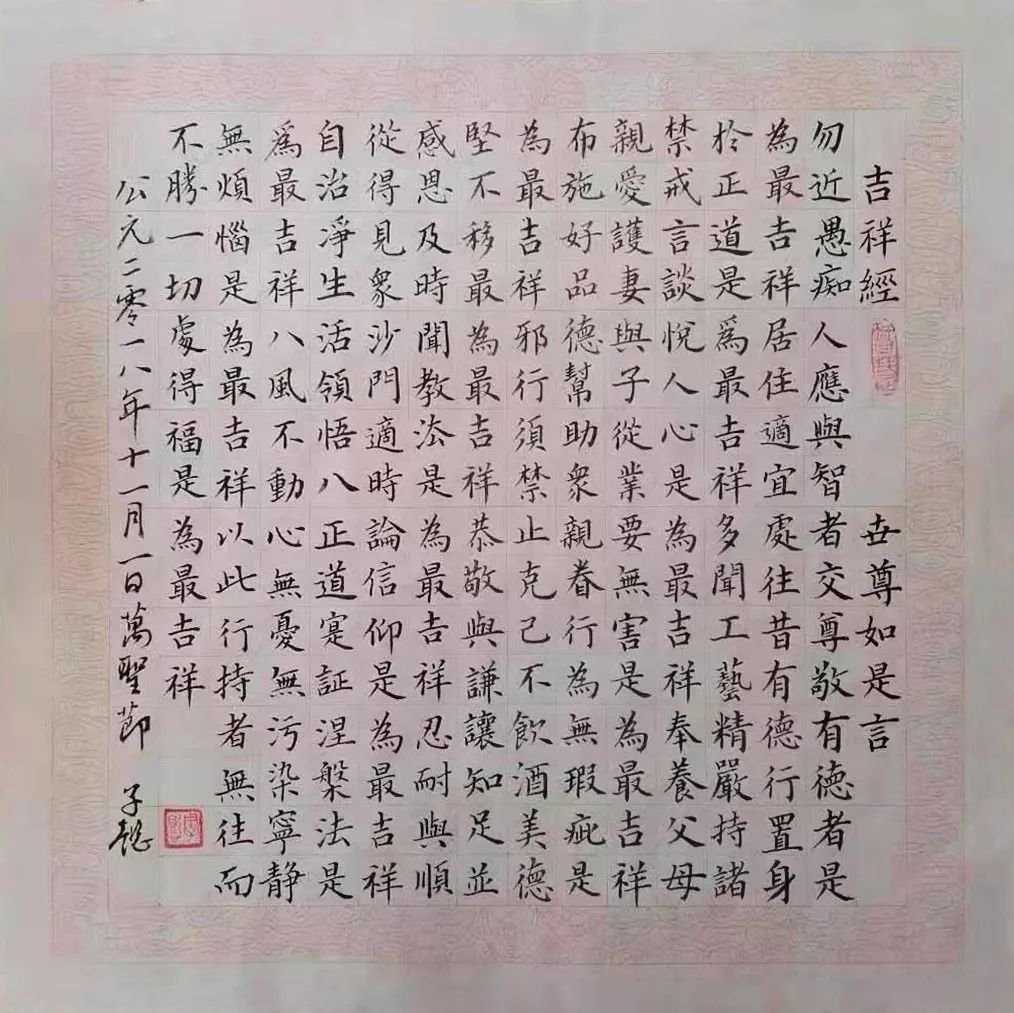 吉祥經 世尊如是言
勿近愚痴人應與智者交尊敬有德者是
為最吉祥居住適宜處往昔有德行置身
於正道是為最吉祥多聞工藝精嚴持諸
禁戒言談悅人心是為最吉祥奉養父母
親愛護妻與子從業要無害是為最吉祥
布施好品德幫助衆親眷行為無瑕疵是
為最吉祥邪行須禁止克己不飲酒美德
堅不移最為最吉祥恭敬與謙讓知足並
感恩及時聞教法是為最吉祥忍耐與順
從得見衆沙門適時論信仰是為最吉祥
自治淨生活領悟八正道寔証涅槃法是
爲最吉祥八風不動心無憂無污染寧静
無煩惱是為最吉祥以此行持者無往而
不勝一切處得福是為最吉祥
公元二零一八年十一月一日萬聖節 子懿